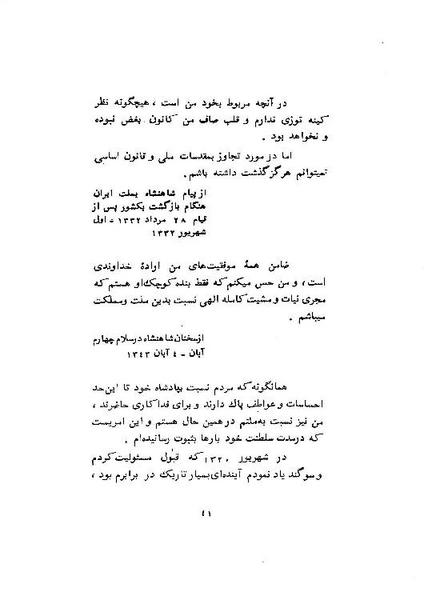 در آنچه مربوط بخود من است ، هیچگونه نظر
کینه توزی ندارم و قلب صاف من کانون بغض نبوده
و نخواهد بود .
اما در مورد تجاوز بمقدسات ملی و قانون اساسی
نمیتوانم هرگز گذشت داشته باشم .
از پیام شاهنشاه بملت ایران
هنگام بازگشت بکشور پس از
قیام ۲۸ مرداد ۱۳۳۲ - اول
شهریور ۱۳۳۲
ضامن همهٔ موفقیت‌های من ارادهٔ خداوندی
است ، و من حس میکنم که فقط بنده کوچک او هستم که
مجری نیات و مشیت کامله الهی نسبت بدین ملت و مملکت
میباشم .
از سخنان شاهنشاه در سلام چهارم
آبان - ۴ آبان ۱۳۴۳
همانگونه که مردم نسبت بپادشاه خود تا این حد
احساسات و عواطف پاك دارند و برای فداکاری حاضرند ،
من نیز نسبت به ملتم در همین حال هستم و این امریست
که در مدت سلطنت خود بارها بثبوت رسانیده‌ام .
در شهریور ۱۳۲۰ که قبول مسئولیت کردم
و سوگند یاد نمودم آینده‌ای بسیار تاریك در برابرم بود ،
۴۱